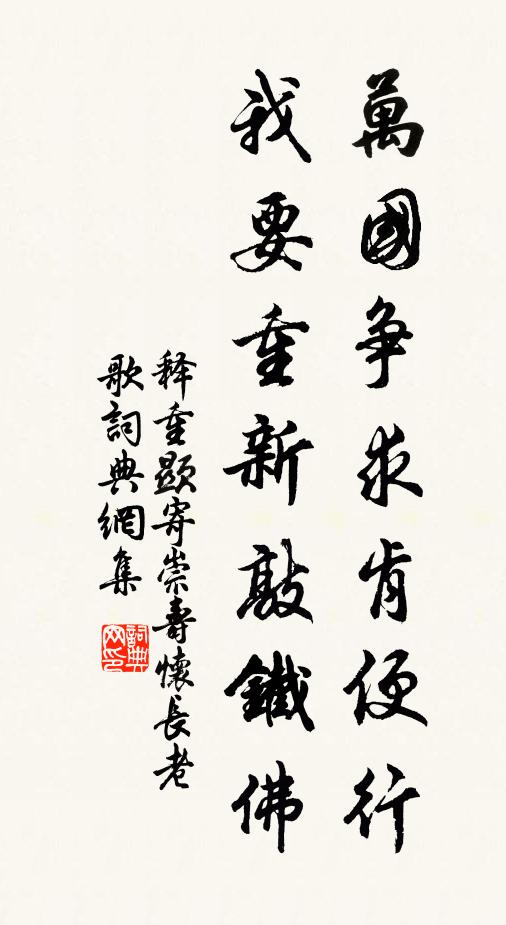 萬國争求肯便行
我要重新敲鐵佛
釋重顯寄崇壽懷長老
歌詞典網集
詞典
网印